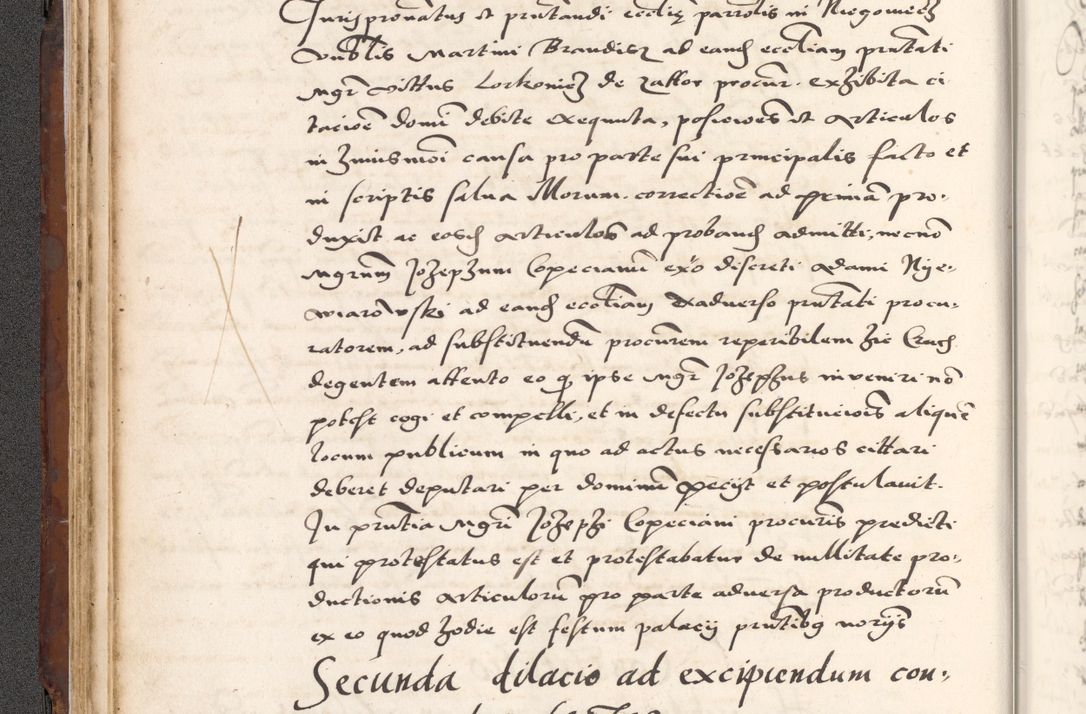 Jurispronatus et prntandi ecclię parrolis in Niegowiecz
Nublis Martini Brandisz ad eand eccliam prntati
Mgr Vittus Lorkowicz de Zattor procur. exhibita ci
tacioē domi debite exequuta, posiciones et Articulos
in huiusmōi causa pro parte sui principalis facto et
in scriptis salua Morum. correctioē ad primā pro:
duxit ac eosd articulos ad proband admitti, necnō
Mgrum Jozephum Copecianum ex̄o discreti Adami Nye:
wiarowski ad eand eccliam exaduerso prntati procu:
ratorem, ad substituendū procurem reperibilem hic Crac
degentem attento eo q ipse Mgr Jozephus inueniri nō
potest cogi et compelli, et in defectu substitucionis aliquē
locum publicum in quo ad actus necessarios cittari
deberet deputari per dominum peciit et postulauit.
In prntia Mgri Jozephi Copeciani procuris predicti
qui protestatus est et protestabatur de nullitate pro:
ductionis Articulorū pro parte aduersa productorū
ex eo quod hodie est festum palacij prntibg noriis
Secunda dilacio ad excipiendum con: